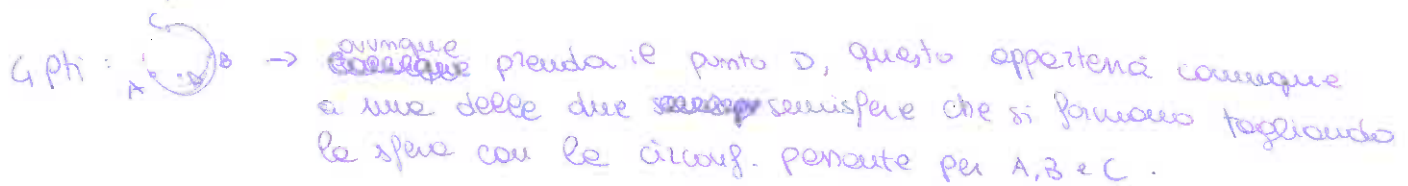 4 pti : A B C D → ovunque prenda il punto D, questo apparterrà comunque
a una delle due semisfere che si formano tagliando
la sfera con la circonf. passante per A, B e C.